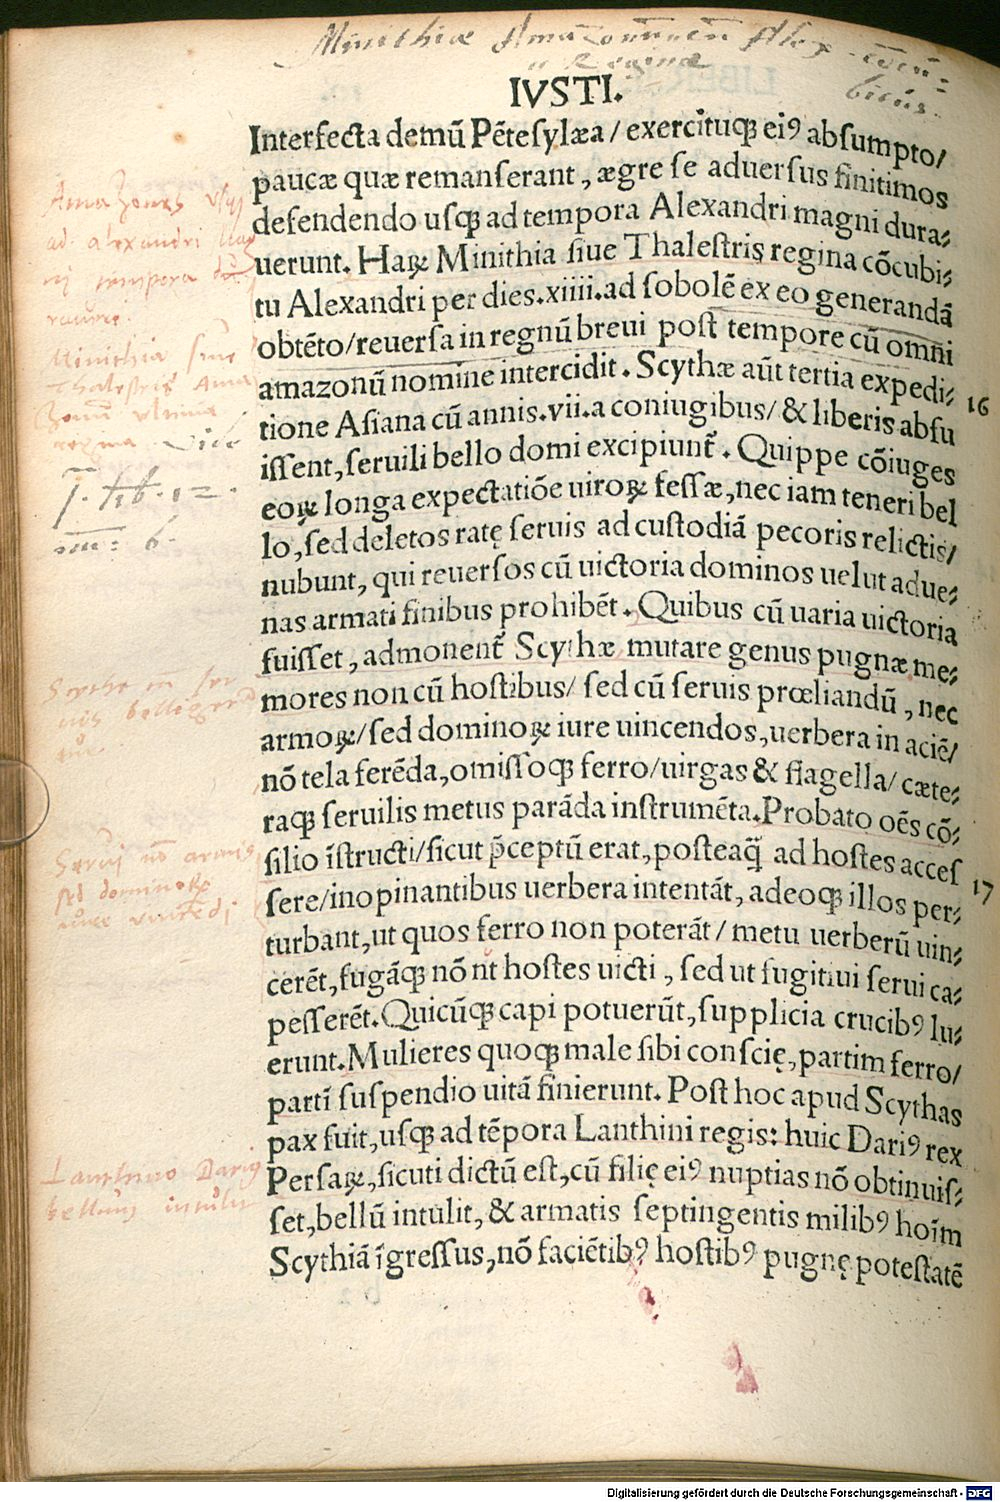 Minithiæ Amazonum cū Alex. cōcu=
bitus.
Reginæ
IVSTI.
Interfecta demū Pētesylæa / exercituqꝫ eiꝰ absumpto/
paucæ quæ remanserant, ægre se aduersus finitimos
defendendo usqꝫ ad tempora Alexandri magni dura⸗
uerunt. Haꝝ Minithia siue Thalestris regina cōcubi⸗
tu Alexandri per dies.xiiii.ad sobolē ex eo generandā
obtēto/reuersa in regnū breui post tempore cū omni
amazonū nomine intercidit. Scythæ aūt tertia expedi⸗
tione Asiana cū annis.vii.a coniugibus/ & liberis absu
issent, seruili bello domi excipiunt᷑. Quippe cōiuges
eoꝝ longa expectatiōe uiroꝝ fessæ, nec iam teneri bel
lo, sed deletos ratę seruis ad custodiā pecoris relictis/
nubunt, qui reuersos cū uictoria dominos uelut adue⸗
nas armati finibus prohibēt. Quibus cū uaria uictoria
fuisset, admonent᷑ Scythæ mutare genus pugnæ me⸗
mores non cū hostibus/ sed cū seruis prœliandū, nec
armoꝝ/sed dominoꝝ iure uincendos, uerbera in aciē/
nō tela ferēda, omissoqꝫ ferro/uirgas & flagella/ cæte⸗
raqꝫ seruilis metus parāda instrumēta. Probato oēs cō⸗
silio īstructi/sicut p̄ceptū erat, posteaq̄ ad hostes acces
sere/inopinantibus uerbera intentāt, adeoqꝫ illos per⸗
turbant, ut quos ferro non poterāt / metu uerberū uin⸗
cerēt, fugāqꝫ nō ut hostes uicti, sed ut fugitiui serui ca⸗
pesserēt. Quicūqꝫ capi potuerūt, supplicia crucibꝰ lu⸗
erunt. Mulieres quoqꝫ male sibi conscię, partim ferro/
partī suspendio uitā finierunt. Post hoc apud Scythas
pax fuit, usqꝫ ad tēpora Lanthini regis: huic Dariꝰ rex
Persaꝝ, sicuti dictū est, cū filię eiꝰ nuptias nō obtinuis⸗
set, bellū intulit, & armatis septingentis milibꝰ hoīm
Scythiā īgressus, nō faciētibꝰ hostibꝰ pugnę potestatē
Amazones usqꝫ
ad alexandri
tempora du
Minithia siue
Thalestris Ama
zonū ultima
Vide
Scythe cū ser
uis
Seruj nō armis
sed dominoꝝ
iure uincēdj
Lanthino Darius
bellum intulit
16
17
Digitalisierung gefördert durch die Deutsche Forschungsgemeinschaft - DFG